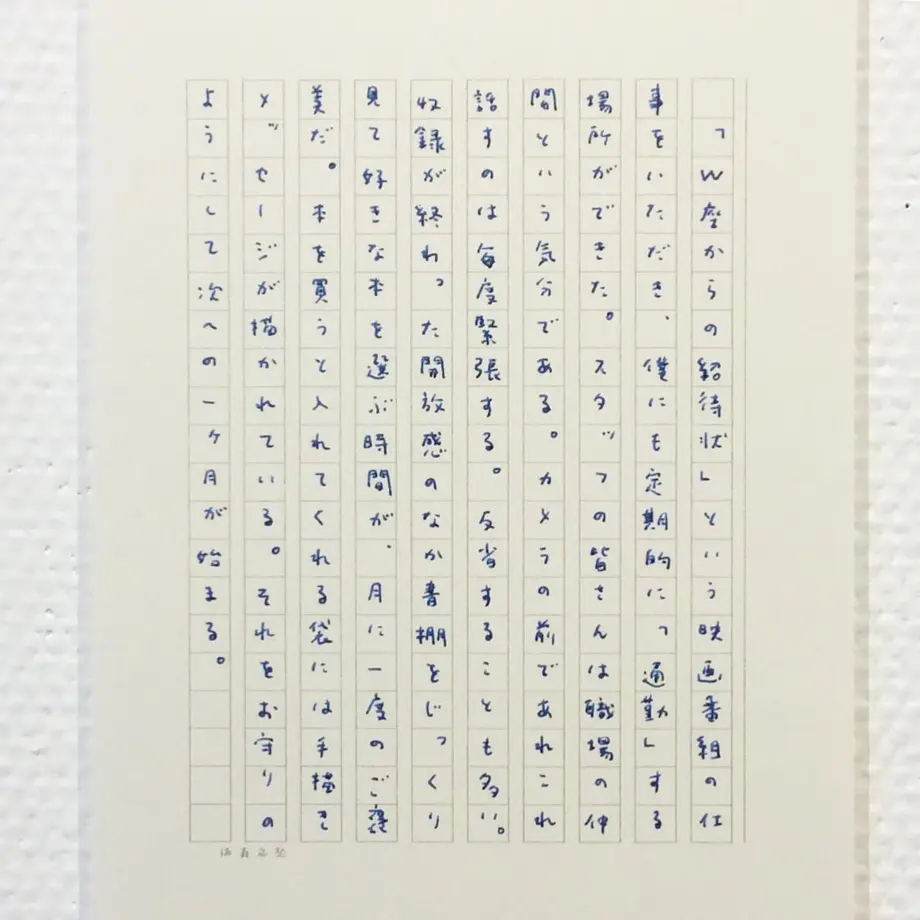 「W座からの紹待状」という映画番組の仕
事をいただき、僕にも定期的に「通勤」する
場所ができた。スタッフの皆さんは職場の仲
間という気分である。カメラの前であれこれ
話すのは毎度緊張する。反省することも多い。
収録が終わった開放感のなか書棚をじっくり
見て好きな本を選ぶ時間が、月に一度のご褒
美だ。本を買うと入れてくれる袋には手描き
メッセージが描かれている。それをお守りの
ようにして次への一ヶ月が始まる。